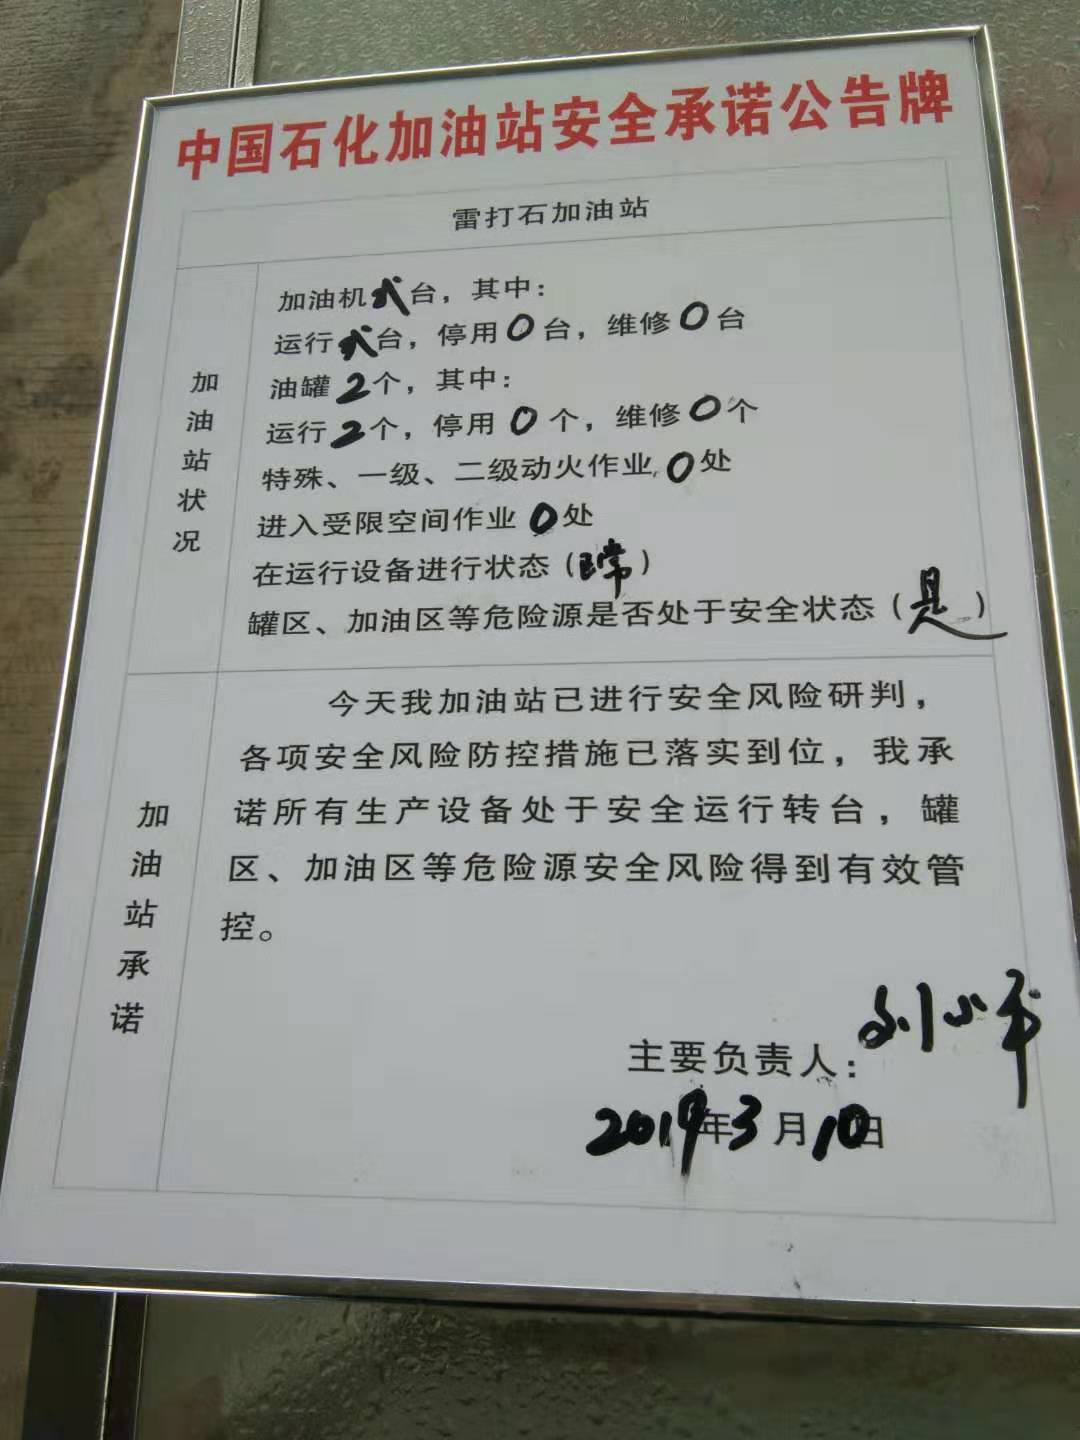 中国石化加油站安全承诺公告牌
雷打石加油站
加油站状况
加油机弍台，其中：
运行弍台，停用0台，维修0台
油罐2个，其中：
运行2个，停用0个，维修0个
特殊、一级、二级动火作业0处
进入受限空间作业0处
在运行设备进行状态（正常）
罐区、加油区等危险源是否处于安全状态（是）
加油站承诺
今天我加油站已进行安全风险研判，
各项安全风险防控措施已落实到位，我承
诺所有生产设备处于安全运行转台，罐
区、加油区等危险源安全风险得到有效管
控。
主要负责人：刘小平
2019年3月10日